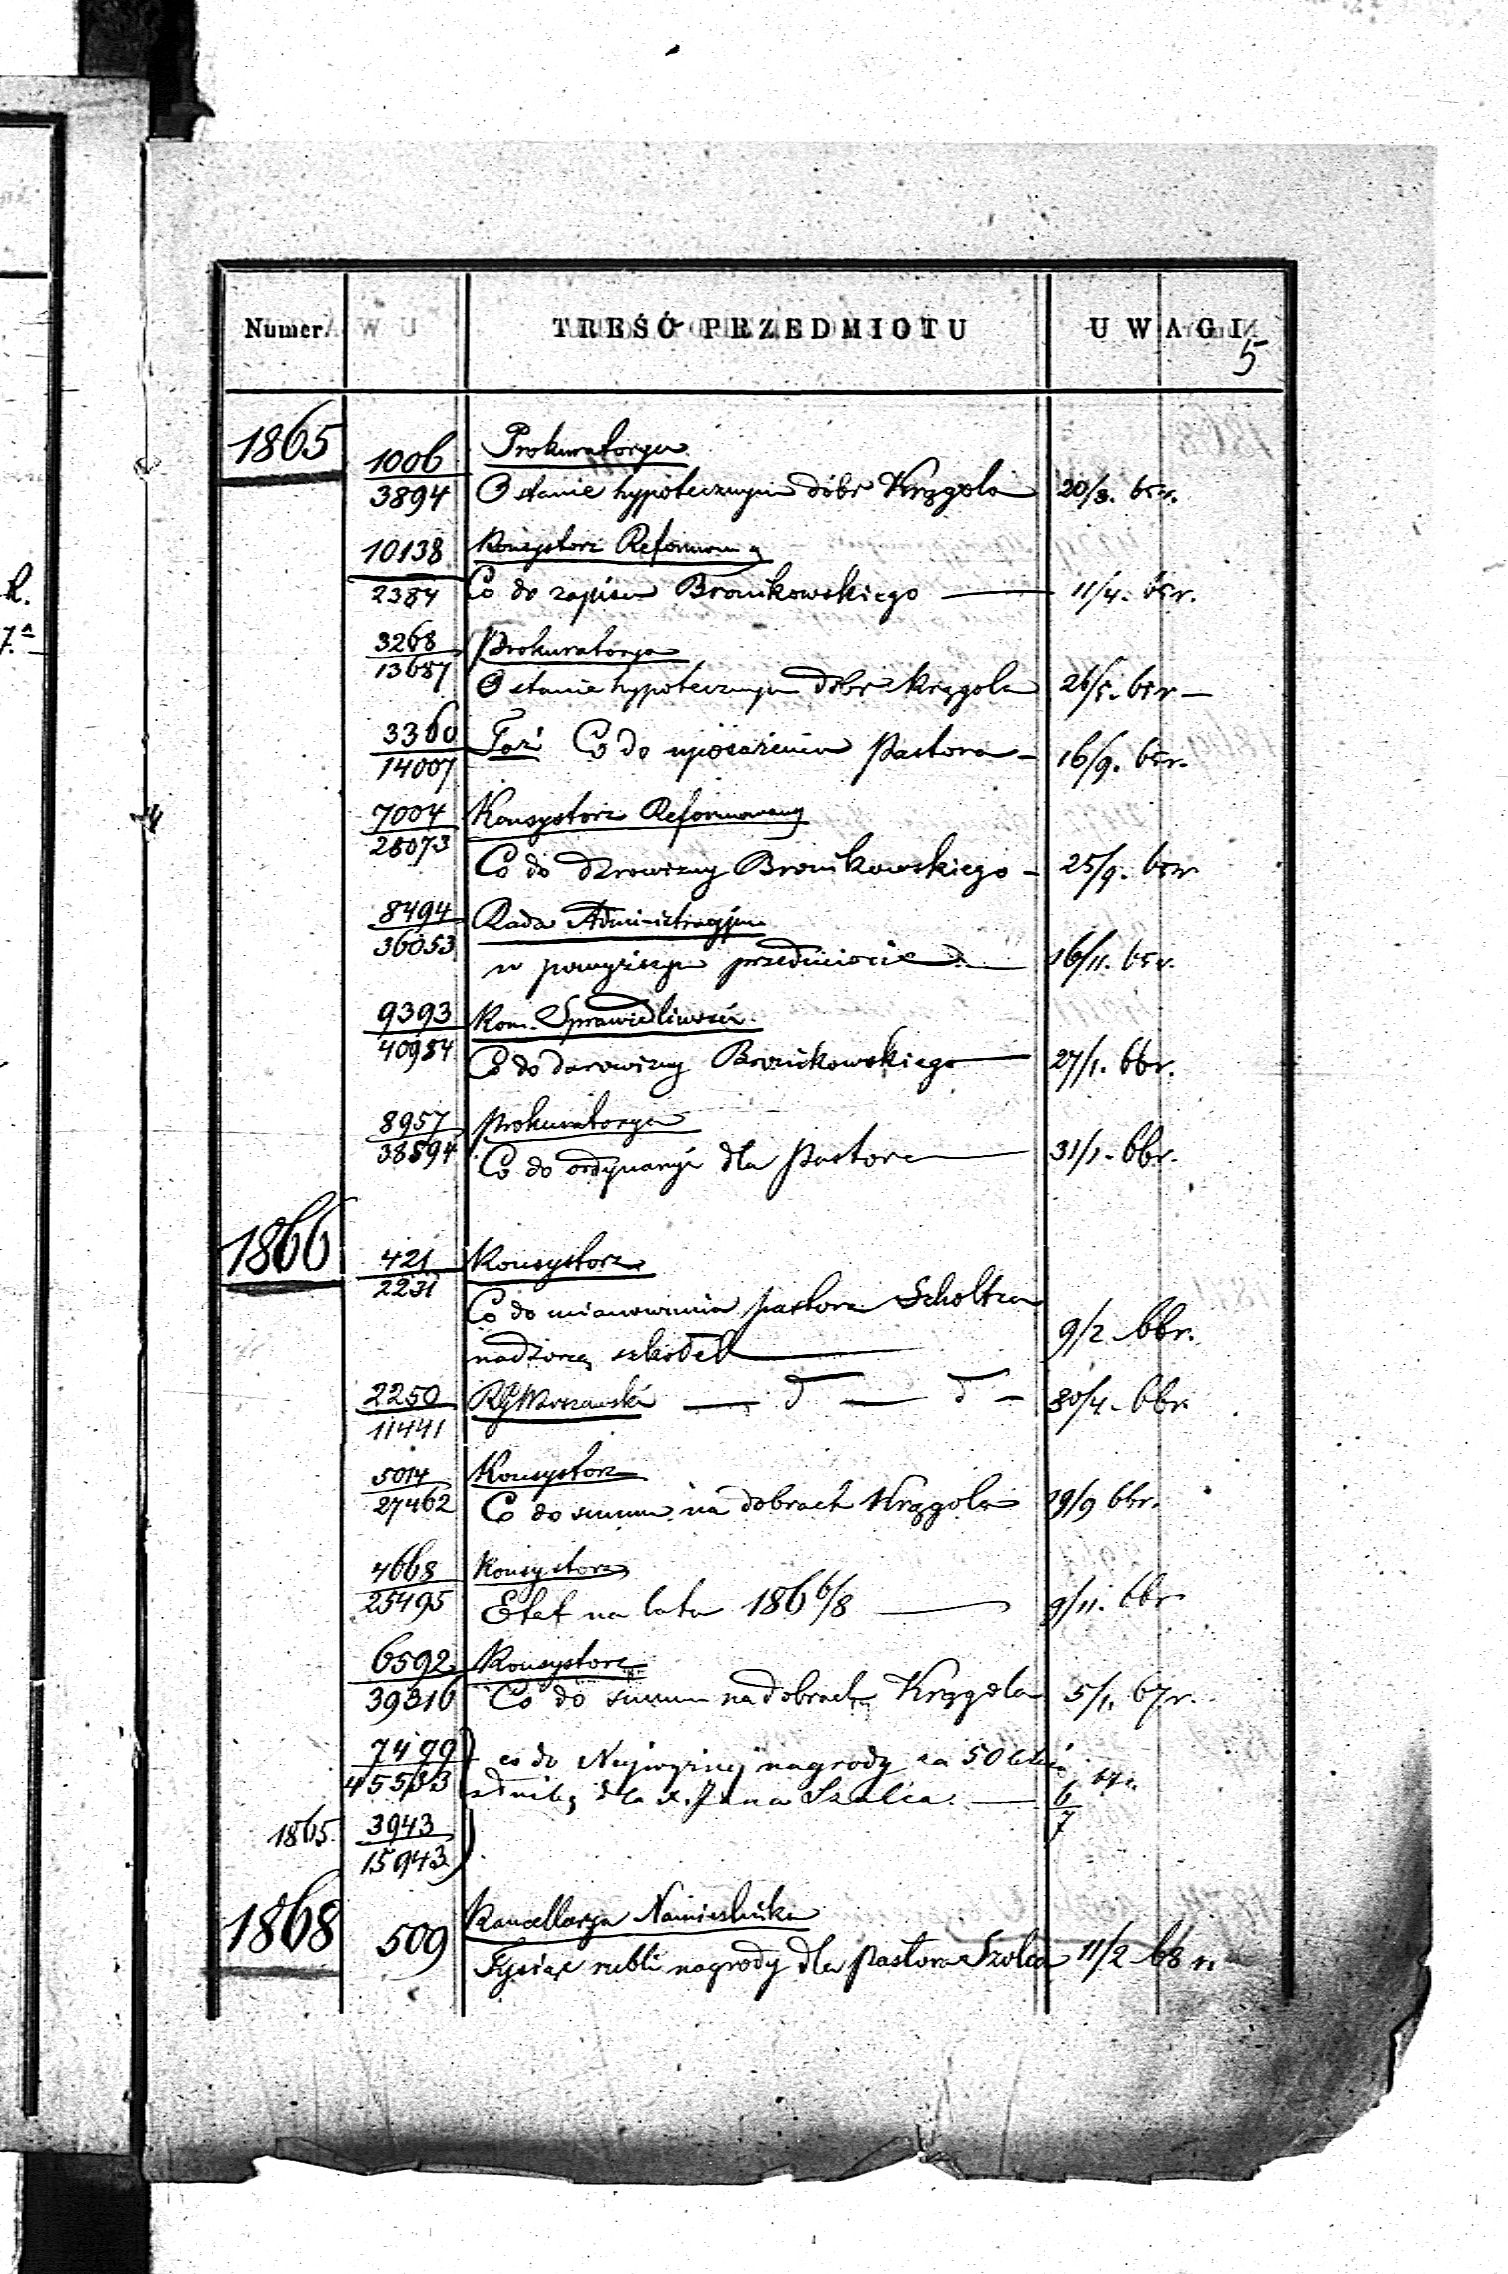 Numer TREŚĆ PRZEDMIOTU UWAGI
5
1865 1006 Prokuratorya
3894 O stanie hypotecznym dóbr Krągola 20/3. 65 r.
10138 Konsystorz Reformowany
2384 Co do zapisu Bronikowskiego — 11/4. 65 r.
3268 Prokuratorya
13687 O stanie hypotecznym dóbr Krągola 26/5. 65 r —
3360 Taż Co do uposażenia Pastora — 16/9. 65 r.
14007
7004 Konsystorz Reformowany
28073 Co do darowizny Bronikowskiego — 25/9. 65 r
8494 Rada Administracyjna
36053 w powyższym przedmiocie — 16/11. 65 r.
9393 Kom. Sprawiedliwości
40954 Co do darowizny Bronikowskiego — 27/1. 66 r.
8957 Prokuratorya
38594 Co do ordynaryi dla Pastora — 31/1. 66 r.
1866 421 Konsystorz
2231 Co do mianowania pastora Scholtza
nadzorcą szkółek — 9/2 66 r.
2250 RGWarszawski — d — d — 30/4. 66 r.
11441
5014 Konsystorz
27462 Co do summ na dobrach Krągola 29/9 66 r.
4668 Konsystorz
25495 Etat na lata 186 6/8 — 9/11. 66 r
6592 Konsystorz
39316 Co do summ na dobrach Krągola 5/1. 67 r.
7499 co do Najwyższej nagrody za 50 letnią
45533 służbę dla x. Jana Szulca. — 6/7 67 r.
1865 3943
15943
1868 Kancellarya Namiestnika
509 Tysiąc rubli nagrody dla pastora Szolca 11/2 68 r.